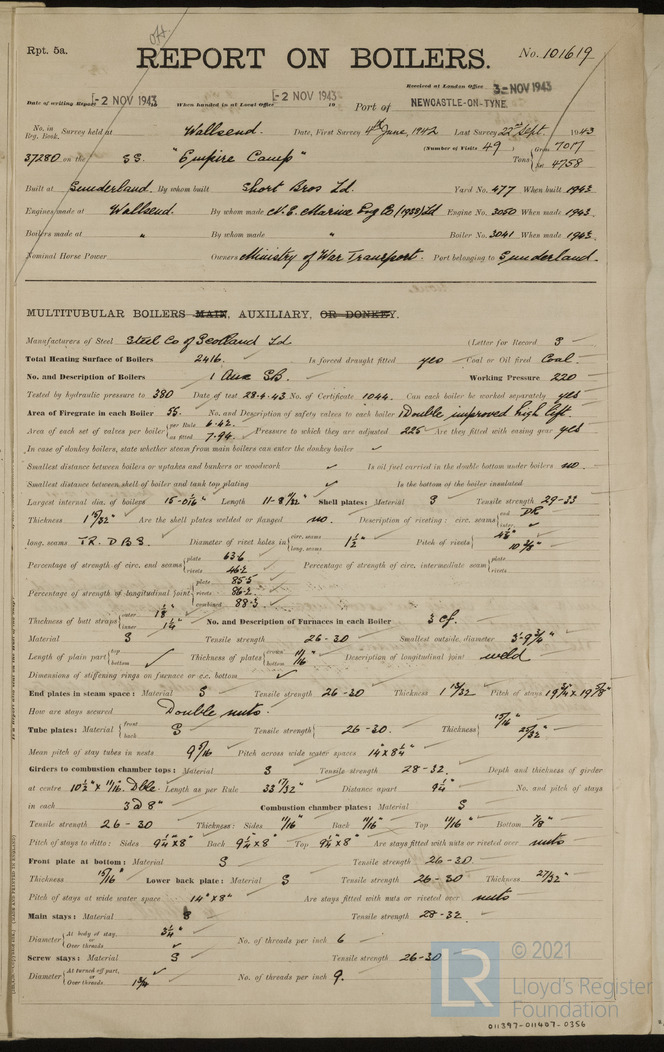 Rpt. 5a.
REPORT ON BOILERS.
No. 101619
Received at London Office 3- NOV 1943
Date of writing Report -2 NOV 1943 When handed in at Local Office -2 NOV 1943 19 Port of NEWCASTLE-ON-TYNE
No. in Reg. Book. Survey held at Wallsend. Date, First Survey 4th June, 1942 Last Survey 22nd Sept. 1943
(Number of Visits 49) Gross 7017
37280 on the SS. "Empire Camp" Tons Net 4758
Built at Sunderland. By whom built Short Bros Ld. Yard No. 477 When built 1943
Engines made at Wallsend. By whom made N. E. Marine Eng Co (1938) Ld Engine No. 3050 When made 1943.
Boilers made at " By whom made " Boiler No. 3041 When made 1943.
Nominal Horse Power Owners Ministry of War Transport. Port belonging to Sunderland.
MULTITUBULAR BOILERS MAIN, AUXILIARY, OR DONKEY.
Manufacturers of Steel Steel Co of Scotland Ld (Letter for Record S
Total Heating Surface of Boilers 2416. Is forced draught fitted yes Coal or Oil fired Coal.
No. and Description of Boilers 1 Aux SB. Working Pressure 220
Tested by hydraulic pressure to 380 Date of test 28.4.43 No. of Certificate 1044. Can each boiler be worked separately yes
Area of Firegrate in each Boiler 55. No. and Description of safety valves to each boiler 1 Double improved high lift
Area of each set of valves per boiler per Rule 6.42. as fitted 7.94. Pressure to which they are adjusted 225 Are they fitted with easing gear yes
In case of donkey boilers, state whether steam from main boilers can enter the donkey boiler ✓
Smallest distance between boilers or uptakes and bunkers or woodwork ✓ Is oil fuel carried in the double bottom under boilers no.
Smallest distance between shell of boiler and tank top plating ✓ Is the bottom of the boiler insulated
Largest internal dia. of boilers 15-0 1/16" Length 11-8 9/32" Shell plates: Material S Tensile strength 29-33
Thickness 1 15/32" Are the shell plates welded or flanged no. Description of riveting: circ. seams end DR inter. ✓
long. seams TR. DBS. Diameter of rivet holes in circ. seams long. seams 1 1/2" Pitch of rivets 10 3/8"
Percentage of strength of circ. end seams plate 63.6 rivets 46.2 Percentage of strength of circ. intermediate seam plate rivets
Percentage of strength of longitudinal joint plate 85.5 rivets 86.2 combined 88.3
Thickness of butt straps outer 1 1/8" inner 1 1/4" No. and Description of Furnaces in each Boiler 3 cf.
Material S Tensile strength 26-30 Smallest outside diameter 3'-9 3/4"
Length of plain part top bottom ✓ Thickness of plates crown bottom 11/16" Description of longitudinal joint weld
Dimensions of stiffening rings on furnace or c.c. bottom ✓
End plates in steam space: Material S Tensile strength 26-30 Thickness 1 13/32 Pitch of stays 19 3/4 x 19 5/8"
How are stays secured Double nuts.
Tube plates: Material front back S Tensile strength 26-30. Thickness 15/16" 25/32"
Mean pitch of stay tubes in nests 9 5/16 Pitch across wide water spaces 14" x 8 1/4"
Girders to combustion chamber tops: Material S Tensile strength 28-32. Depth and thickness of girder
at centre 10 1/2" x 11/16. Dble. Length as per Rule 33 17/32" Distance apart 9 1/4" No. and pitch of stays
in each 3 @ 8" Combustion chamber plates: Material S
Tensile strength 26-30 Thickness: Sides 11/16" Back 11/16" Top 11/16" Bottom 7/8"
Pitch of stays to ditto: Sides 9 1/4" x 8" Back 9 1/4" x 8" Top 9 1/4" x 8" Are stays fitted with nuts or riveted over nuts
Front plate at bottom: Material S Tensile strength 26-30
Thickness 15/16" Lower back plate: Material S Tensile strength 26-30 Thickness 27/32"
Pitch of stays at wide water space 14" x 8" Are stays fitted with nuts or riveted over nuts
Main stays: Material S Tensile strength 28-32.
Diameter At body of stay, or Over threads 3 1/4" No. of threads per inch 6
Screw stays: Material S Tensile strength 26-30
Diameter At turned off part, or Over threads 1 3/4 No. of threads per inch 9.
LR © 2021
Lloyd's Register
Foundation
011397-011407-0356